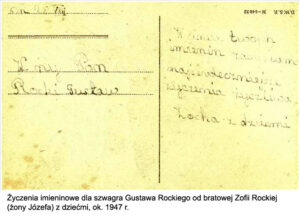 W ny Pan
Rocki Gustaw
W dniu Twoich
imienin zasyłam
najserdeczniejsze
życzenia
Zocha z dziećmi
Życzenia imieninowe dla szwagra Gustawa Rockiego od bratowej Zofii Rockiej
(żony Józefa) z dziećmi, ok. 1947 r.